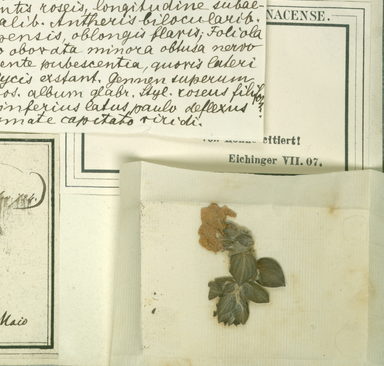 ntis roseis, longitudine subae-
alib. Antheris bilocularib.
pensis, oblongis flavis; Foliola
o obovata minora obtusa nervo
ente pubescentia, quoris lateri
lycis exstant. Germen superum,
os. album glabr. Styl. roseus
inferius latus, paulo deflexus
mate capitato viridi.
NACENSE.
tiert!
Eichinger VII. 07.
Maio